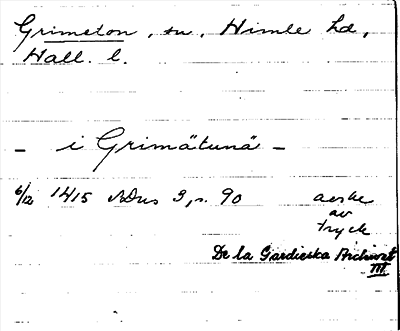 Grimeton, sn, Himle hd,
Hall. l.
- i Grimätunä -
6/12 1415 SDns 3, s. 90 avskr
av
tryck
De la Gardieska Archivet
III